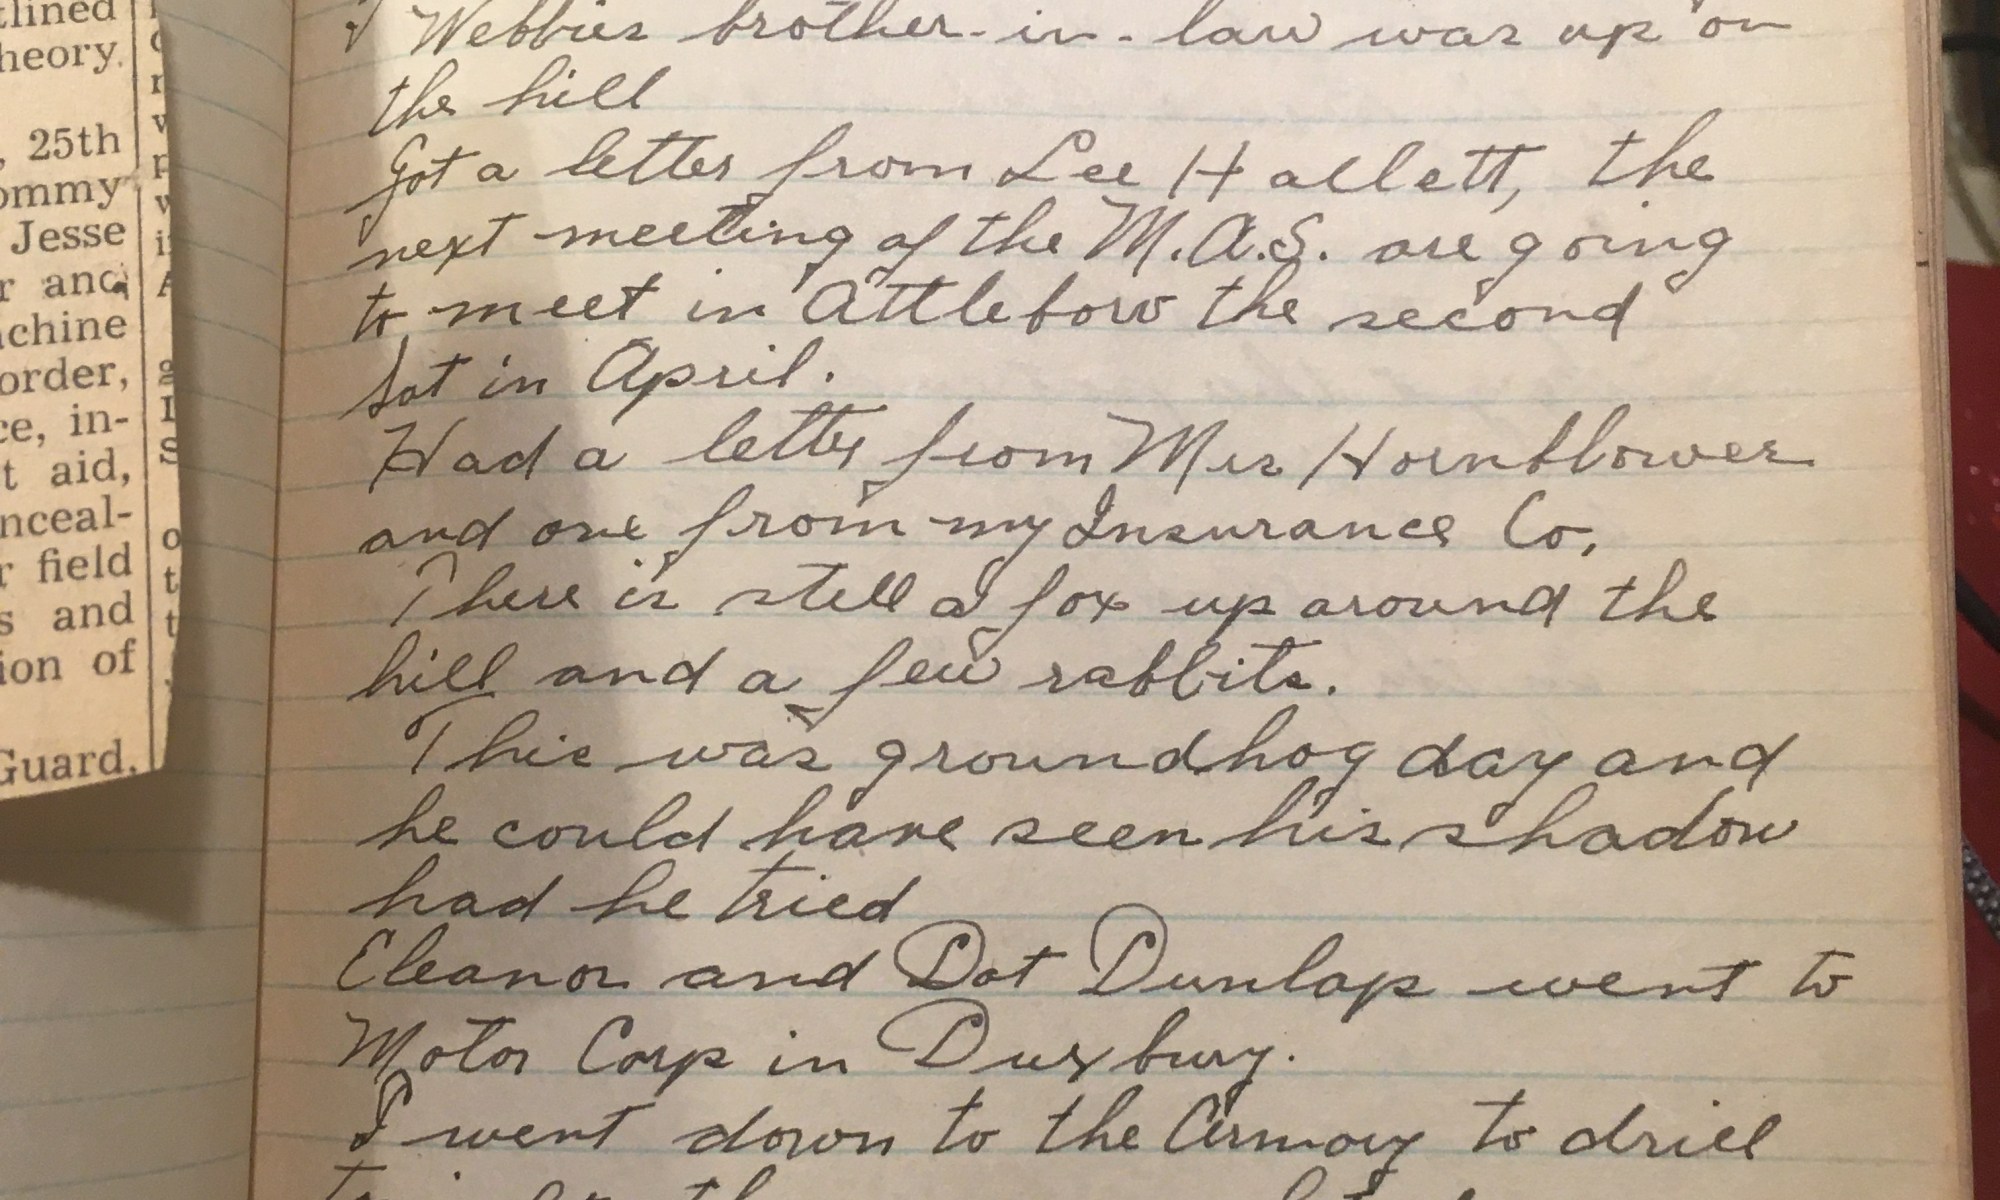 tlined
heory.
, 25th
ommy
Jesse
r and
achine
order,
ce, in-
t aid,
nceal-
r field
s and
ion of
Guard.
Webbies brother-in-law was up on
the hill
Got a letter from Lee Hallett, the
next meeting of the M.A.S. are going
to meet in Attleboro the second
Sat in April.
Had a letter from Mrs Hornblower
and one from my Insurance Co.
There is still a fox up around the
hill and a few rabbits.
This was groundhog day and
he could have seen his shadow
had he tried
Eleanor and Dot Dunlap went to
Motor Corp in Duxbury.
I went down to the Armory to drill